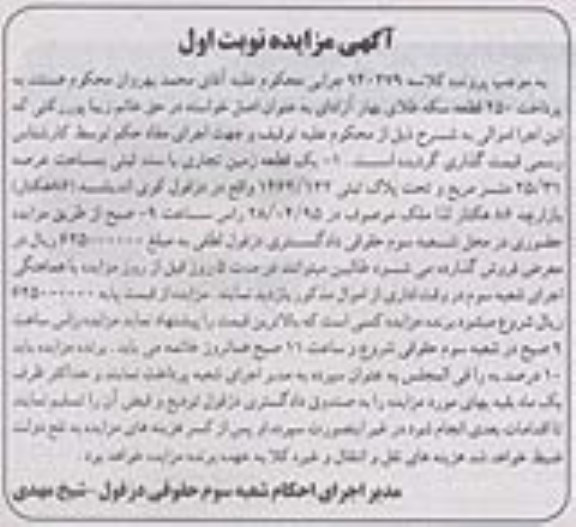 آگهی مزایده نوبت اول
به موجب پرونده کلاسه ۹۴۰۳۷۹ اجرایی محکوم علیه آقای محمد بهروان محکوم هستند به
پرداخت ۲۵۰ قطعه سکه طلای بهار آزادی به عنوان اصل خواسته در حق خانم زیبا که
این اجرا اموالی به شرح ذیل از محکوم علیه توقیف و جهت اجرای مفاد حکم توسط کارشناس
رسمی قیمت گذاری گردیده است. ۱- یک قطعه زمین تجاری با سند ثبتی بمساحت عرصه
۲۵/۳۱ متر مربع و تحت پلاک ثبتی واقع در دزفول کوی اندیشه (۸۶هکتار)
بازارچه ۸۶ هکتار لذا ملک موصوف در ۲۸/۰۲/۹۵ راس ساعت ۹ صبح از طریق مزایده
حضوری در محل شعبه سوم حقوقی دادگستری دزفول به مبلغ ۶۲۵۰۰۰۰۰۰ ریال در
معرض فروش گذارده می شود طالبین میتوانند در مدت ۵ روز قبل از روز مزایده با هماهنگی
اجرای شعبه سوم در وقت اداری از اموال مذکور بازدید نمایند. مزایده از قیمت پایه ۶۲۵۰۰۰۰۰۰
ریال شروع میشود برنده مزایده کسی است که بالاترین قیمت را پیشنهاد نماید مزایده راس ساعت
۹ صبح در شعبه سوم حقوقی شروع و ساعت ۱۱ صبح همانروز خاتمه می یابد. برنده مزایده باید
۱۰ درصد بها را فی المجلس به عنوان سپرده به مدیر اجرای شعبه پرداخت نمایند و حداکثر ظرف
یک ماه بقیه بهای مورد مزایده را به صندوق دادگستری دزفول تودیع و قبض آن را تسلیم نمایند
تا اقدامات بعدی انجام شود در غیر اینصورت سپرده او پس از کسر هزینه های مزایده به نفع دولت
ضبط خواهد شد هزینه های نقل و انتقال و غیره کلا به عهده برنده مزایده خواهد بود.
مدیر اجرای احکام شعبه سوم حقوقی دزفول - شیخ مهدی